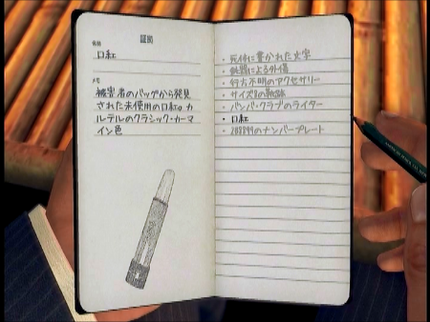 証拠
名前
口紅
メモ
被害者のバッグから発見
された未使用の口紅。カ
ルテルのクラシック・カーマ
イン色
・死体に書かれた文字
・鈍器による外傷
・行方不明のアクセサリー
・サイズ8の靴跡
・バンバ・クラブのライター
・口紅
のナンバープレート